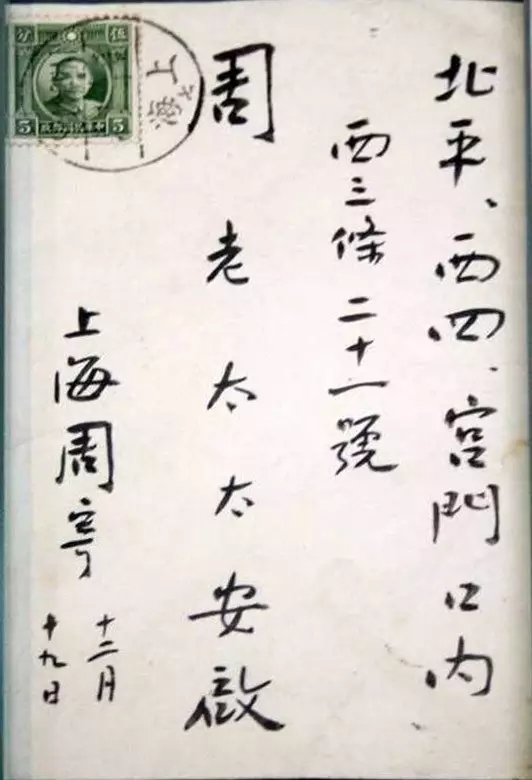 北平、西四、宮門口内
西三條二十一號
周老太太安啟
上海周寄
十二月
十九日
上海
分 伍
5 5